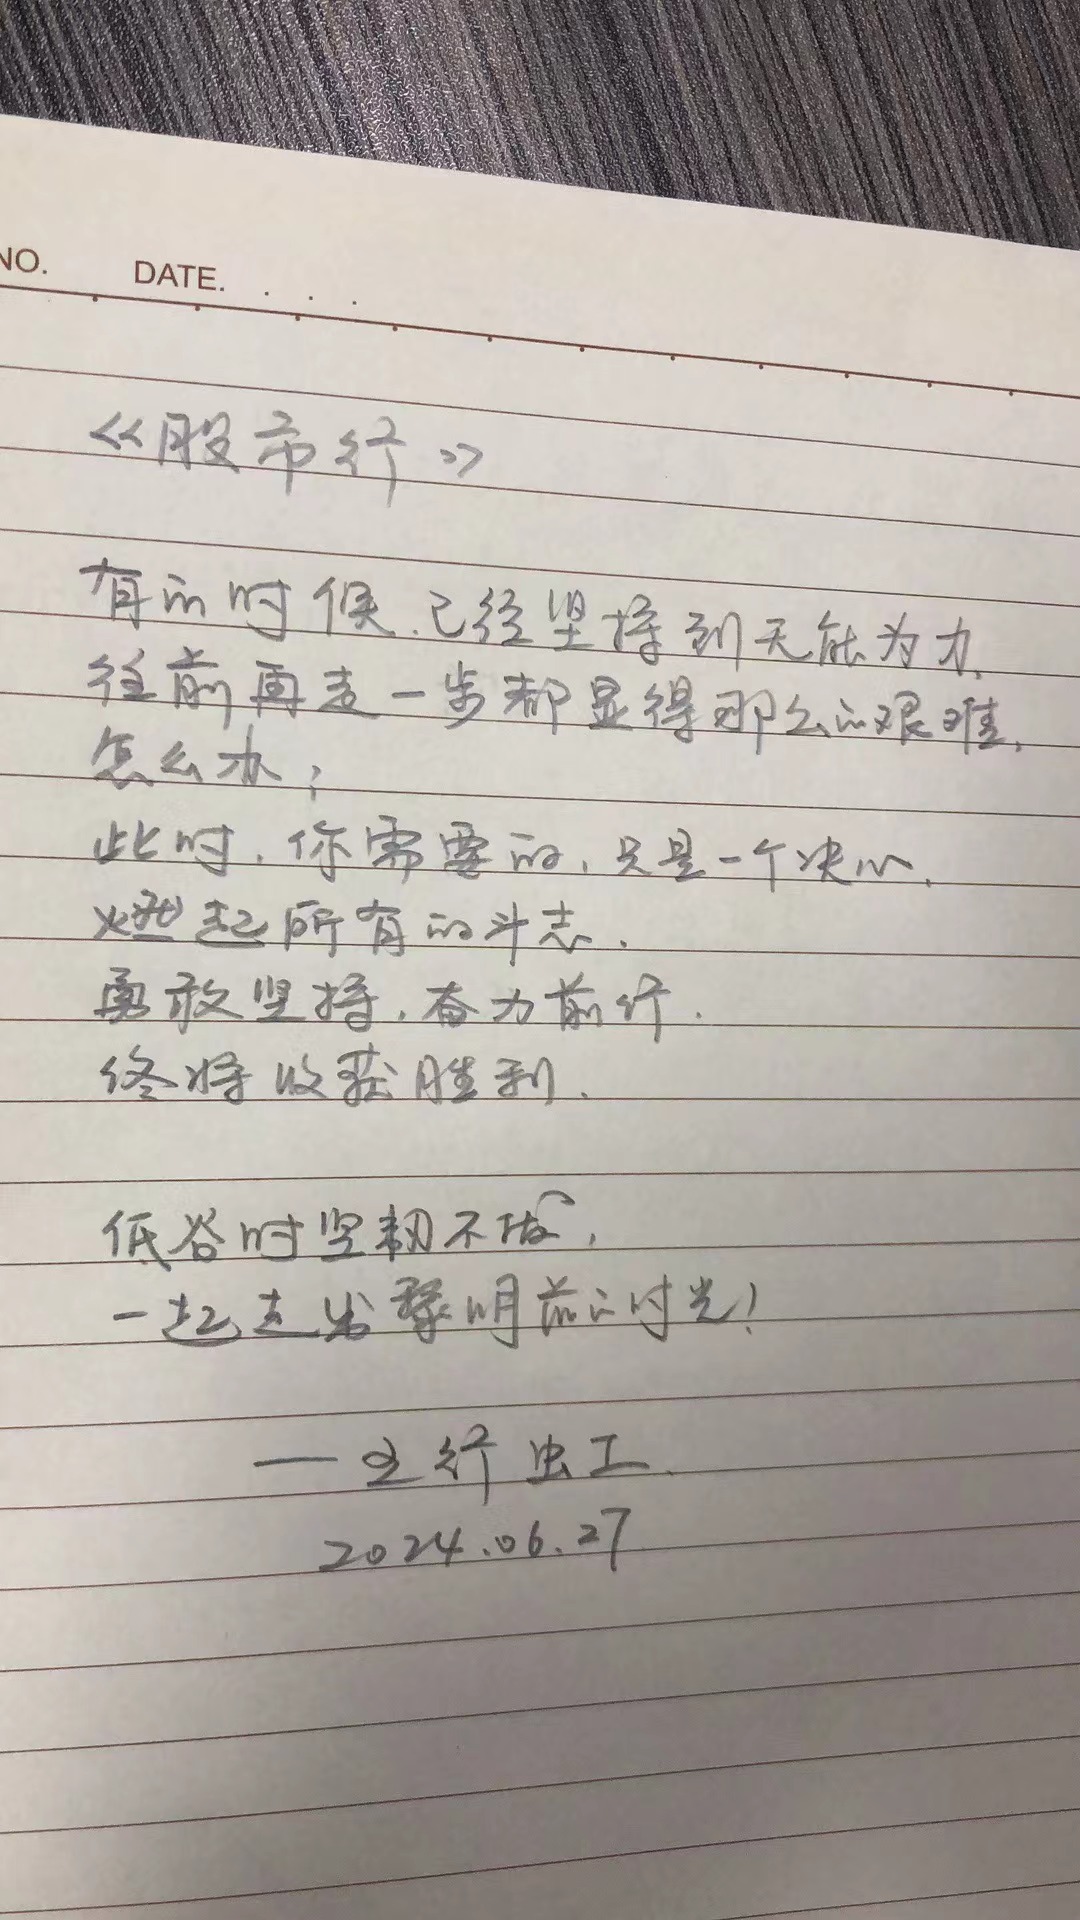 NO. DATE. . . .
《股市行》
有的时候.已经坚持到无能为力.
往前再走一步都显得那么的艰难.
怎么办;
此时.你需要的.只是一个决心.
燃起所有的斗志.
勇敢坚持.奋力前行.
终将收获胜利.
低谷时坚韧不拔,
一起走出黎明前的时光!
行 虫工.
2024.06.27